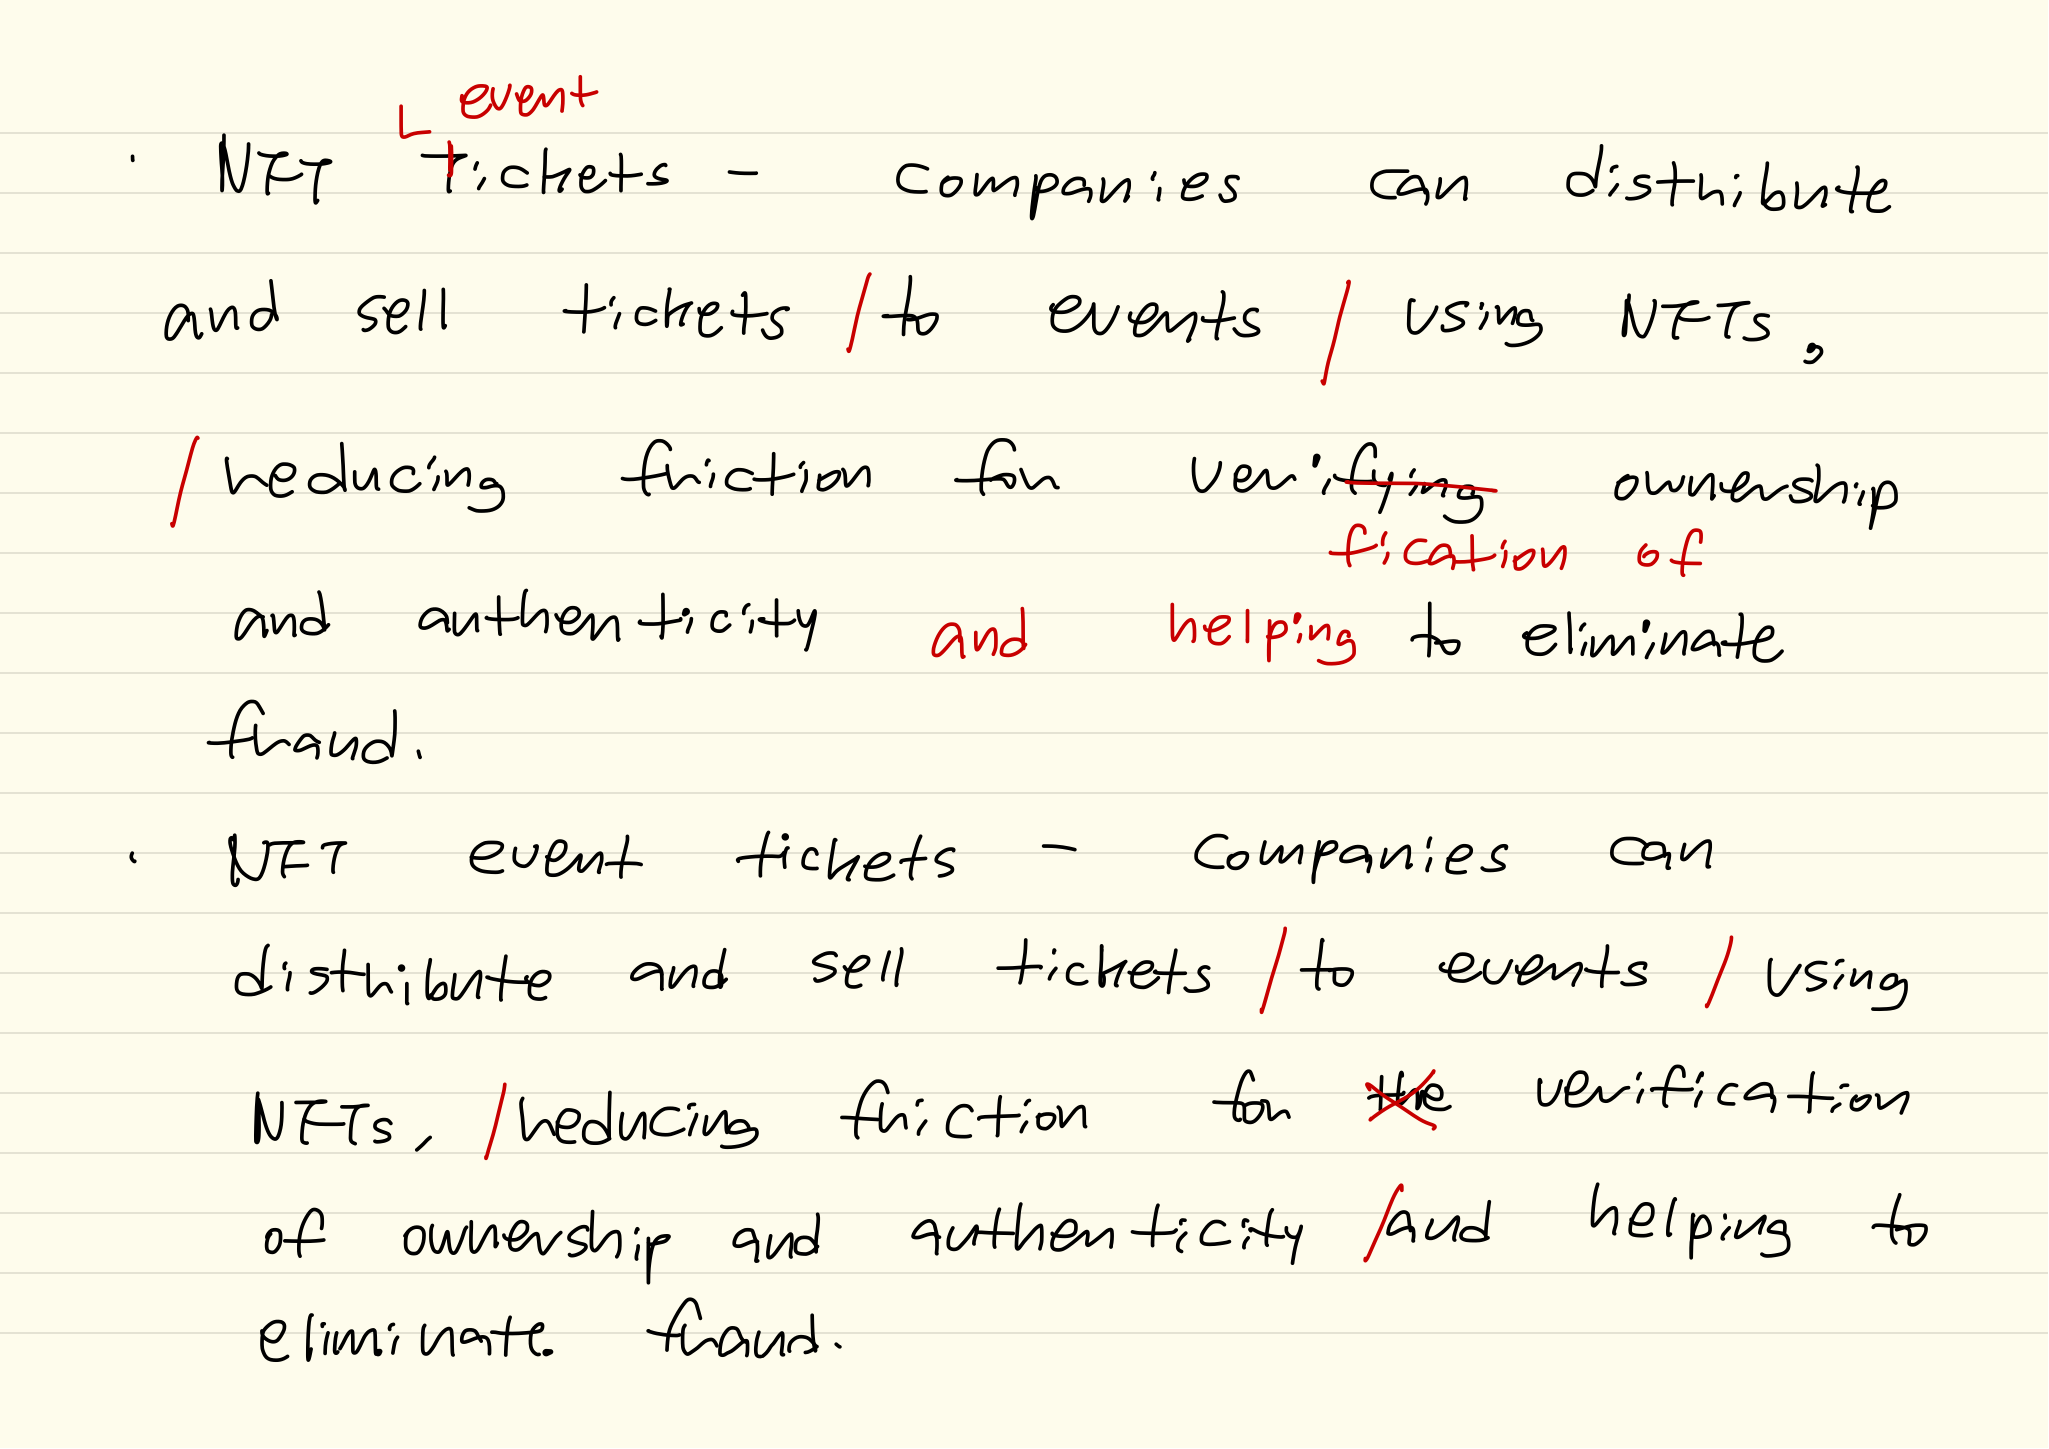 event
· NFT Tickets - companies can distribute
and sell tickets / to events / using NFTs,
/ reducing friction for verifying ownership
fication of
and authenticity and helping to eliminate
fraud.
· NFT event tickets - Companies can
distribute and sell tickets / to events / using
NFTs, / reducing friction for the verification
of ownership and authenticity / and helping to
eliminate fraud.